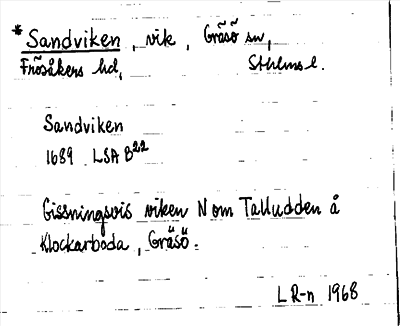 *Sandviken, vik, Gräsö sn,
Frösåkers hd, Sthlms l.
Sandviken
1689 LSA B22
Gissningsvis viken N om Talludden å
Klockarboda, Gräsö.
LR-n 1968